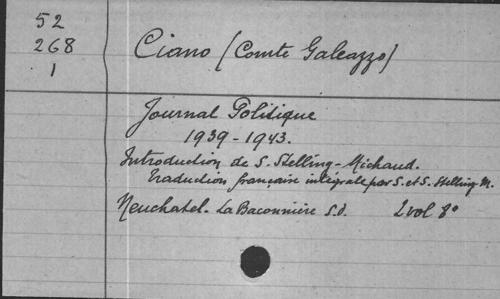 52
268
1
Ciano (Comte Galeazzo)
Journal Politique
1939-1943.
Introduction de S. Stelling-Michaud.
Traduction française intégrale par S. et S. Stelling M.
Neuchatel. La Baconnière S.d. 2 vol 8°